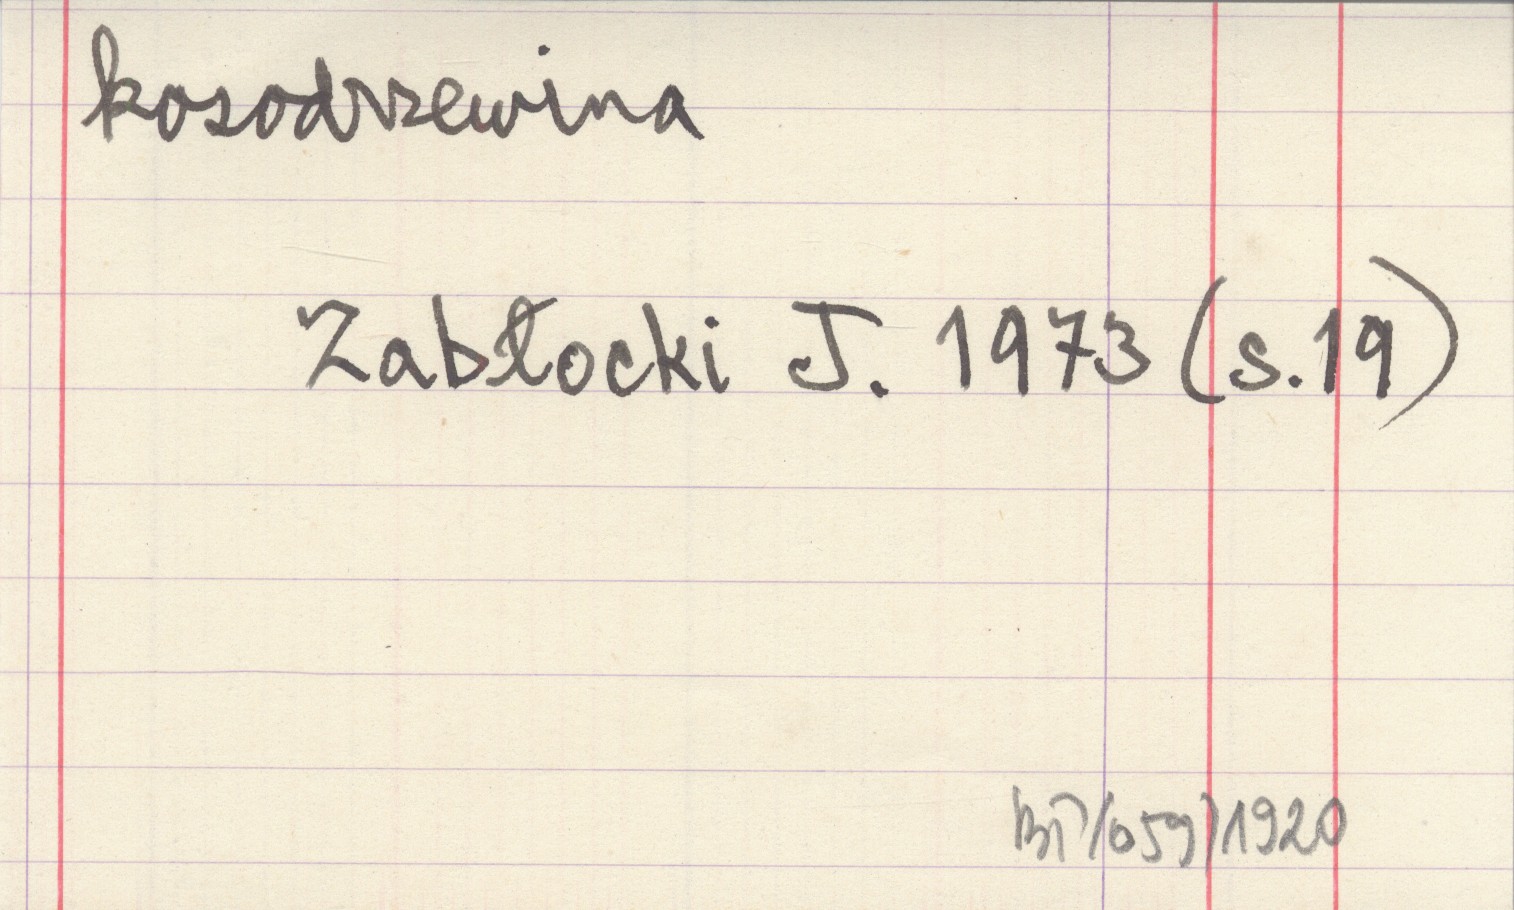 kosodrzewina
Zabłocki J. 1973 (s.19)
(059)1920